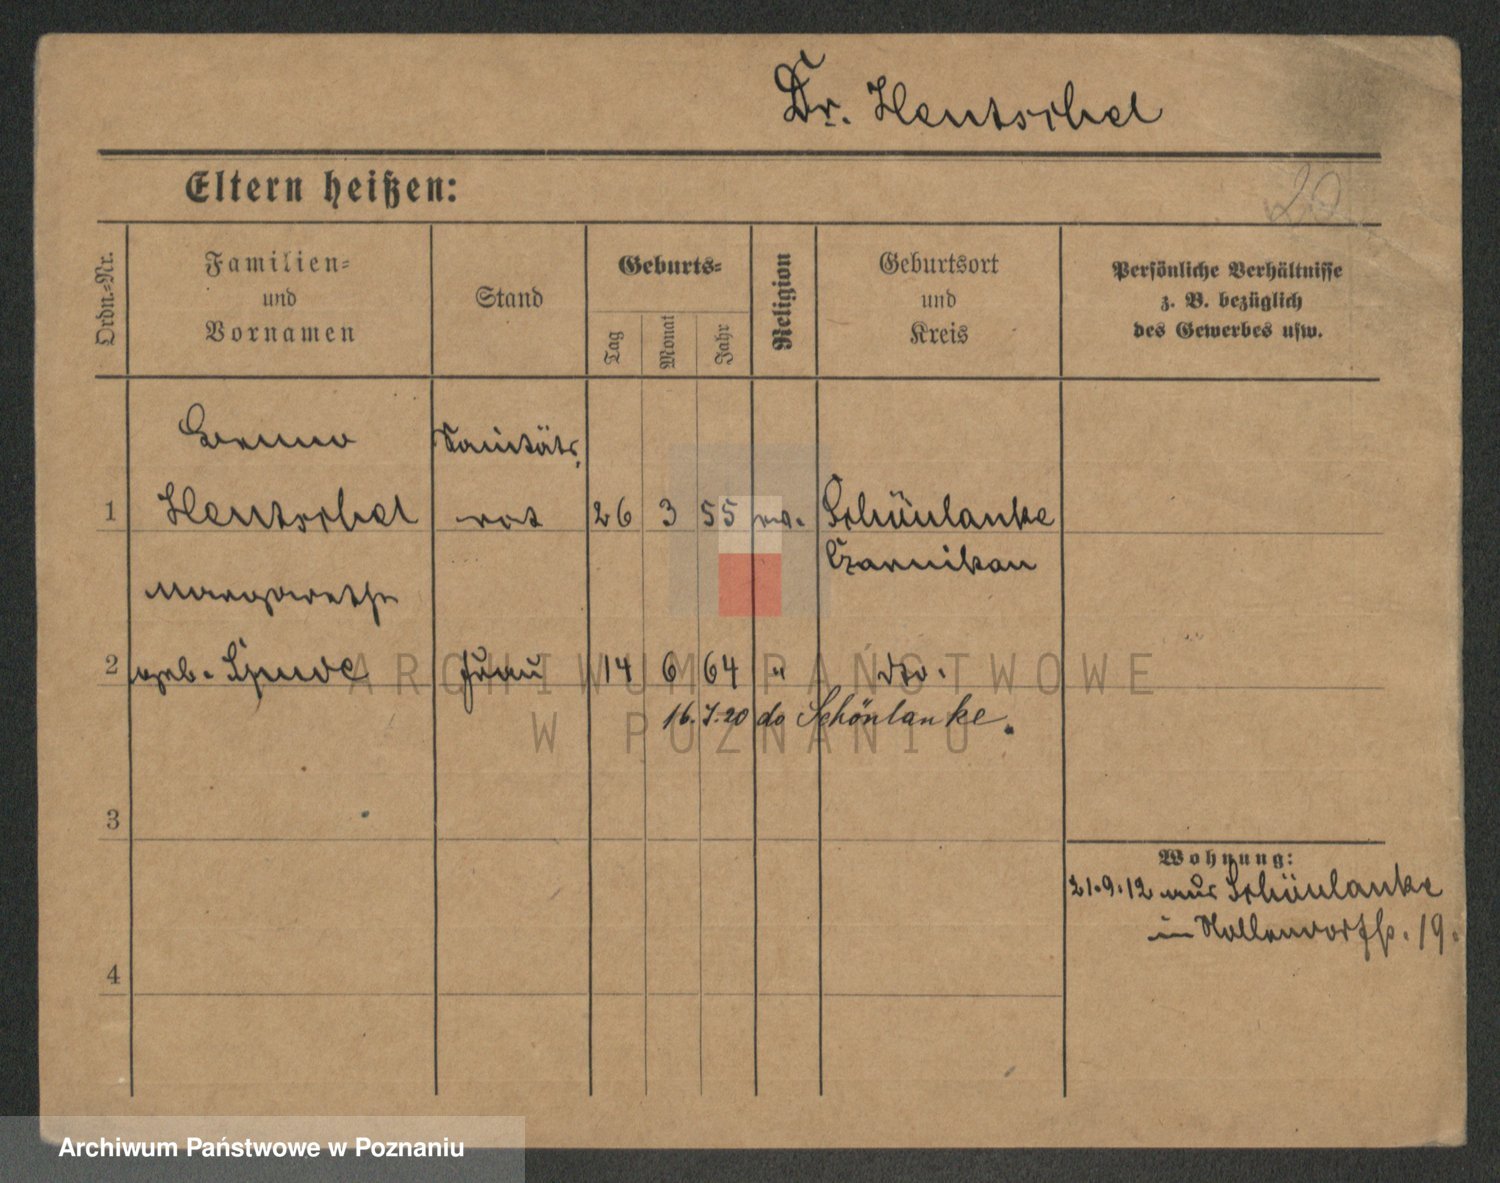 Dr. Hentschel
Eltern heißen:
20
Ordn.-Nr.
Familien-
und
Vornamen
Stand
Geburts-
Tag
Monat
Jahr
Religion
Geburtsort
und
Kreis
Persönliche Verhältnisse
z. B. bezüglich
des Gewerbes usw.
Benno Sanitäts
1 Hentschel rat 26 3 55 ev. Schönlanke
Czarnikau
Margarethe
2 geb. Frau 14 6 64 " dto.
16.7.20 do Schönlanke.
3
Wohnung:
21.9.12 aus Schönlanke
in Nollendorfstr. 19.
4
ARCHIWUM PAŃSTWOWE
W POZNANIU
Archiwum Państwowe w Poznaniu